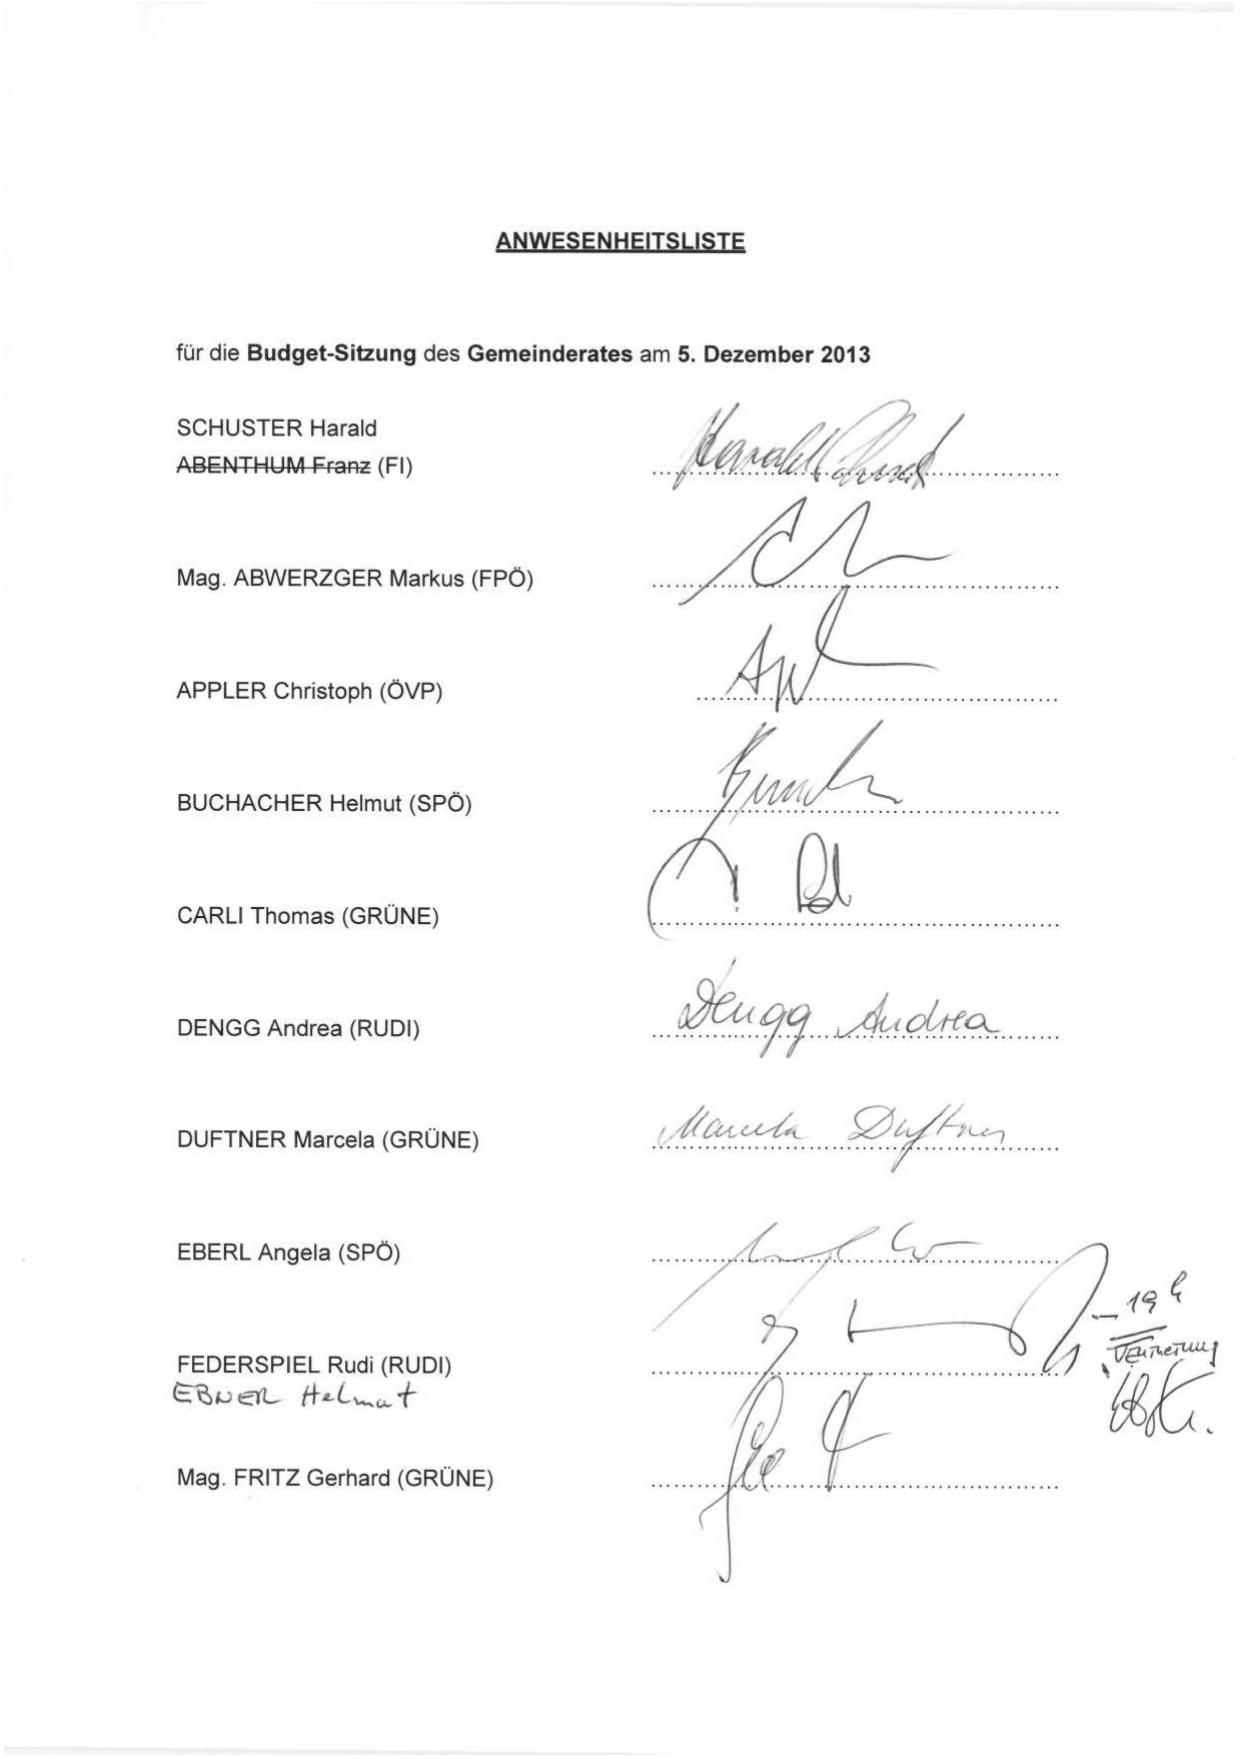 ANWESENHEITSLISTE
für die Budget-Sitzung des Gemeinderates am 5. Dezember 2013
SCHUSTER Harald
ABENTHUM Franz (FI)
Mag. ABWERZGER Markus (FPÖ)
APPLER Christoph (ÖVP)
BUCHACHER Helmut (SPÖ)
CARLI Thomas (GRÜNE)
DENGG Andrea (RUDI) Dengg Andrea
DUFTNER Marcela (GRÜNE) Marcela Duftner
EBERL Angela (SPÖ)
– 19 h
FEDERSPIEL Rudi (RUDI)
EBNER Helmut
Mag. FRITZ Gerhard (GRÜNE)